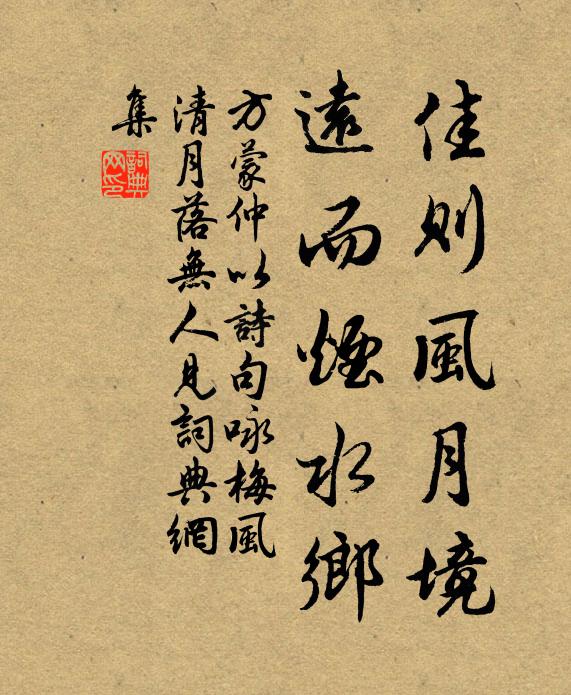 佳則風月境
遠而煙水鄉
方蒙仲以詩句咏梅風
清月落無人見詞典網
集
詞典
网印